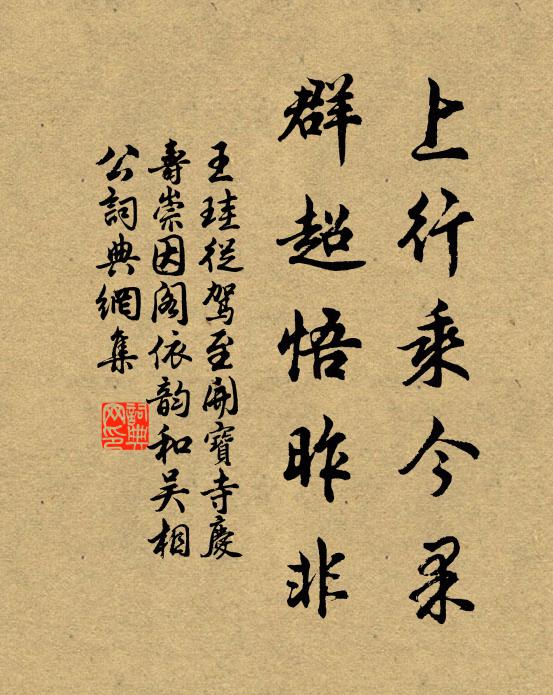 上行乘今果
群超悟昨非
王珪従駕至開寶寺慶
壽崇因閣依韵和吴相
公詞典網集
詞典网印